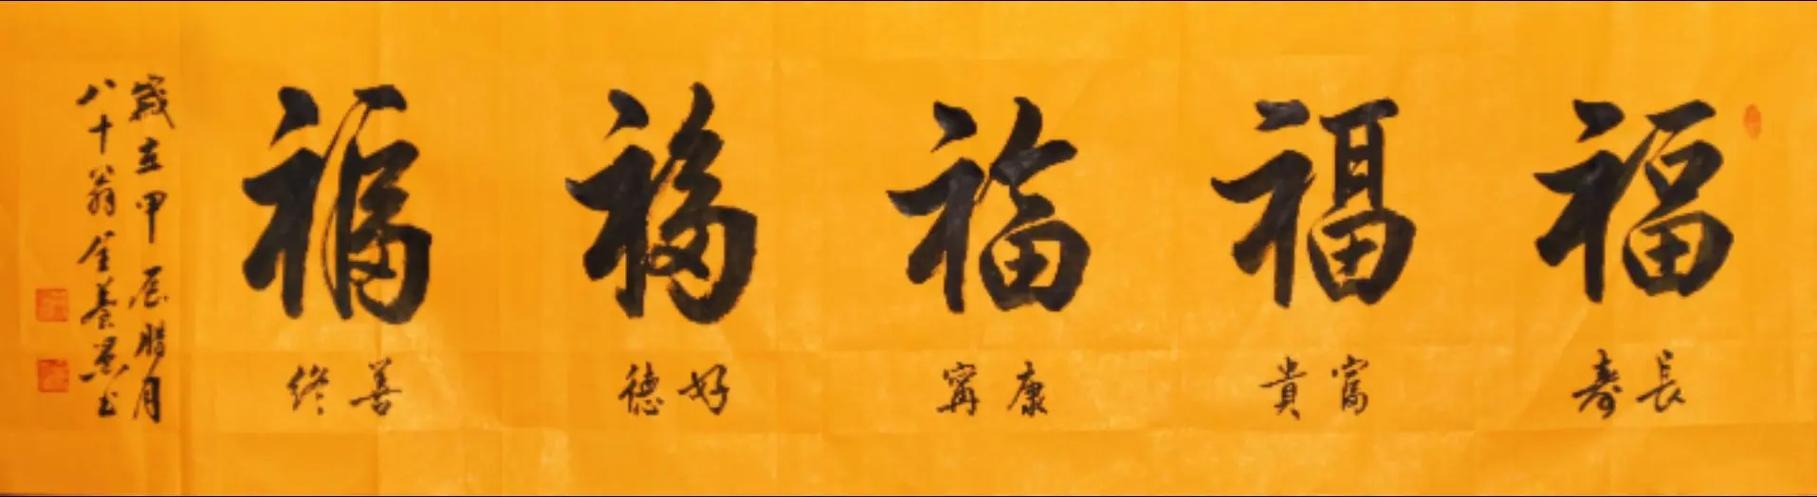 福
長壽
福
富貴
福
康寧
福
好德
福
善終
歲在甲辰腊月
八十翁金養思书